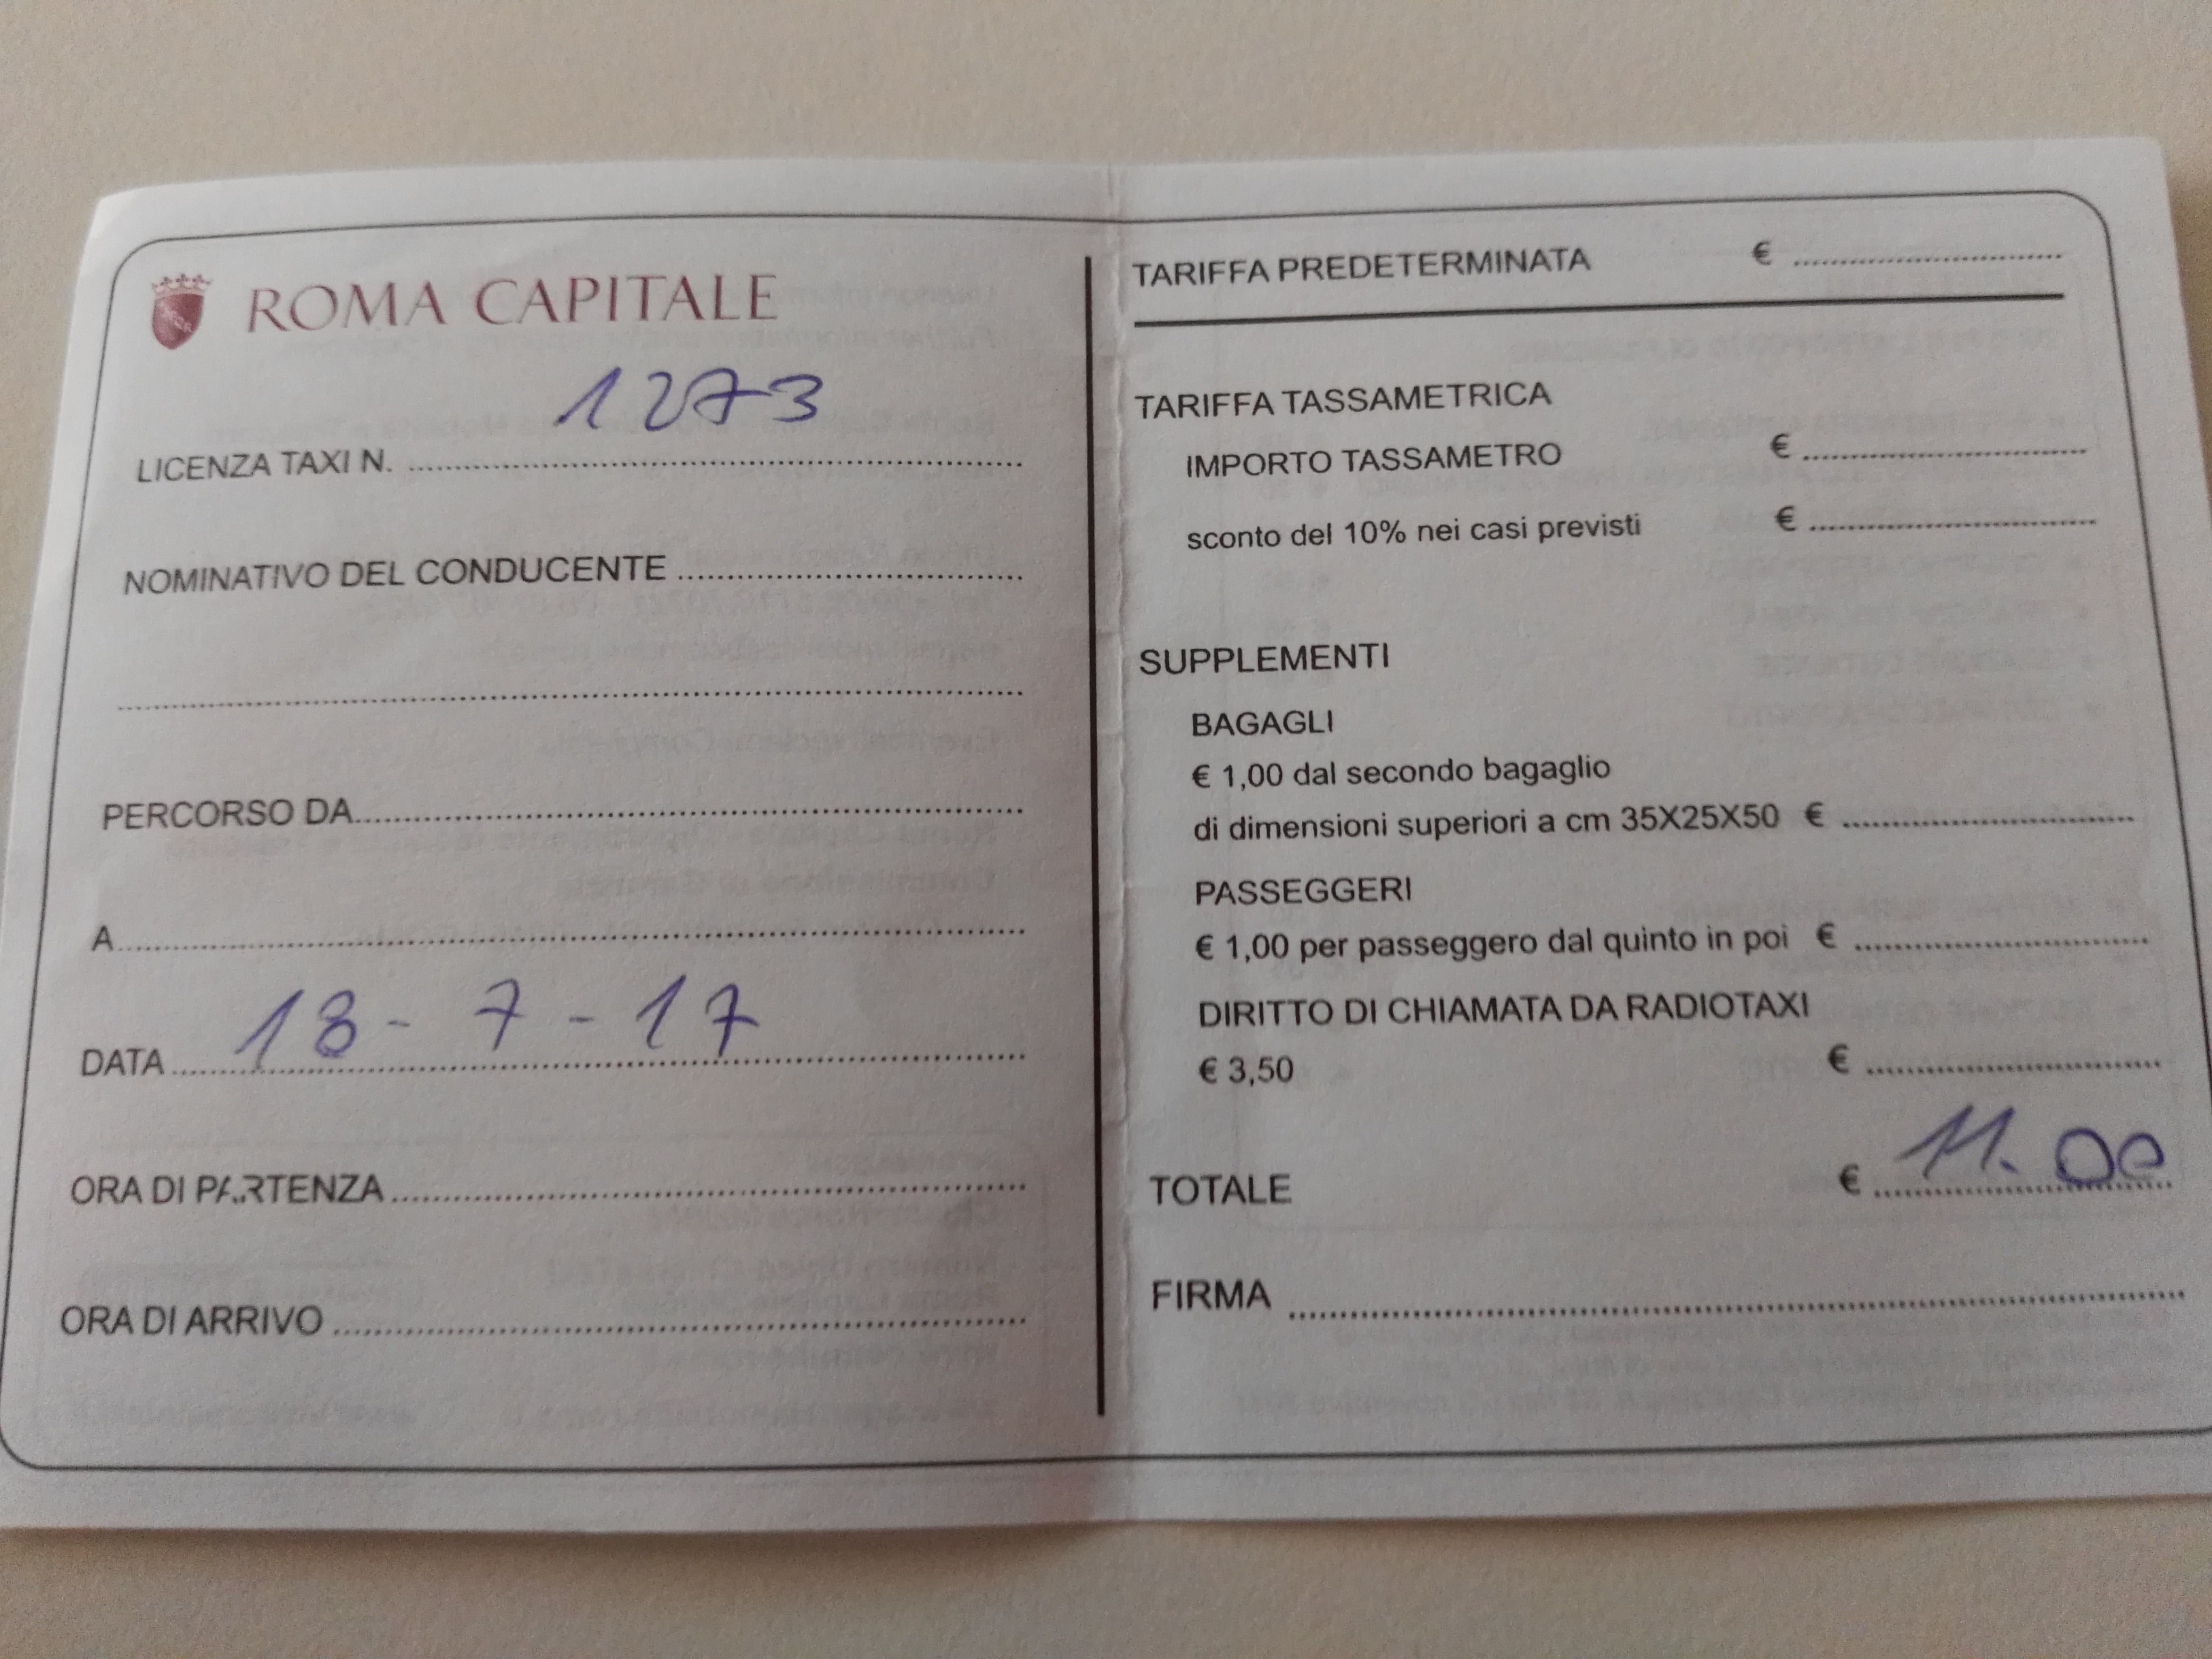 ROMA CAPITALE
1273
LICENZA TAXI N. ........................................
NOMINATIVO DEL CONDUCENTE ........................................
........................................
PERCORSO DA........................................
A........................................
18 - 7 - 17
DATA ........................................
ORA DI PARTENZA ........................................
ORA DI ARRIVO ........................................
TARIFFA PREDETERMINATA € ....................
TARIFFA TASSAMETRICA
IMPORTO TASSAMETRO € ....................
sconto del 10% nei casi previsti € ....................
SUPPLEMENTI
BAGAGLI
€ 1,00 dal secondo bagaglio
di dimensioni superiori a cm 35X25X50 € ....................
PASSEGGERI
€ 1,00 per passeggero dal quinto in poi € ....................
DIRITTO DI CHIAMATA DA RADIOTAXI
€ 3,50 € ....................
TOTALE € 11.00
FIRMA ........................................